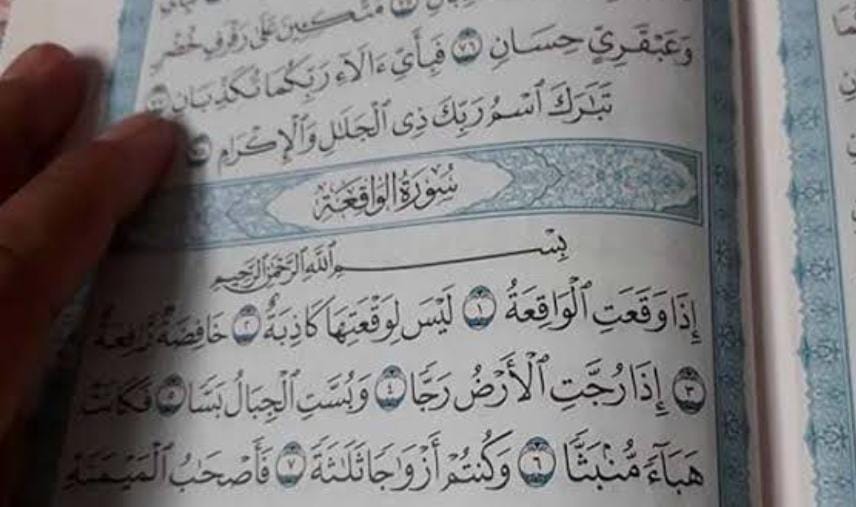 مُتَّكِـِٔينَ عَلَىٰ رَفْرَفٍ خُضْرٍ
وَعَبْقَرِيٍّ حِسَانٍ ٧٦ فَبِأَيِّ ءَالَآءِ رَبِّكُمَا تُكَذِّبَانِ
تَبَٰرَكَ ٱسْمُ رَبِّكَ ذِى ٱلْجَلَٰلِ وَٱلْإِكْرَامِ
سُورَةُ الوَاقِعَةِ
بِسْمِ ٱللَّهِ ٱلرَّحْمَٰنِ ٱلرَّحِيمِ
إِذَا وَقَعَتِ ٱلْوَاقِعَةُ ١ لَيْسَ لِوَقْعَتِهَا كَاذِبَةٌ ٢ خَافِضَةٌ رَّافِعَةٌ
٣ إِذَا رُجَّتِ ٱلْأَرْضُ رَجًّا ٤ وَبُسَّتِ ٱلْجِبَالُ بَسًّا ٥ فَكَانَتْ
هَبَآءً مُّنۢبَثًّا ٦ وَكُنتُمْ أَزْوَٰجًا ثَلَٰثَةً ٧ فَأَصْحَٰبُ ٱلْمَيْمَنَةِ